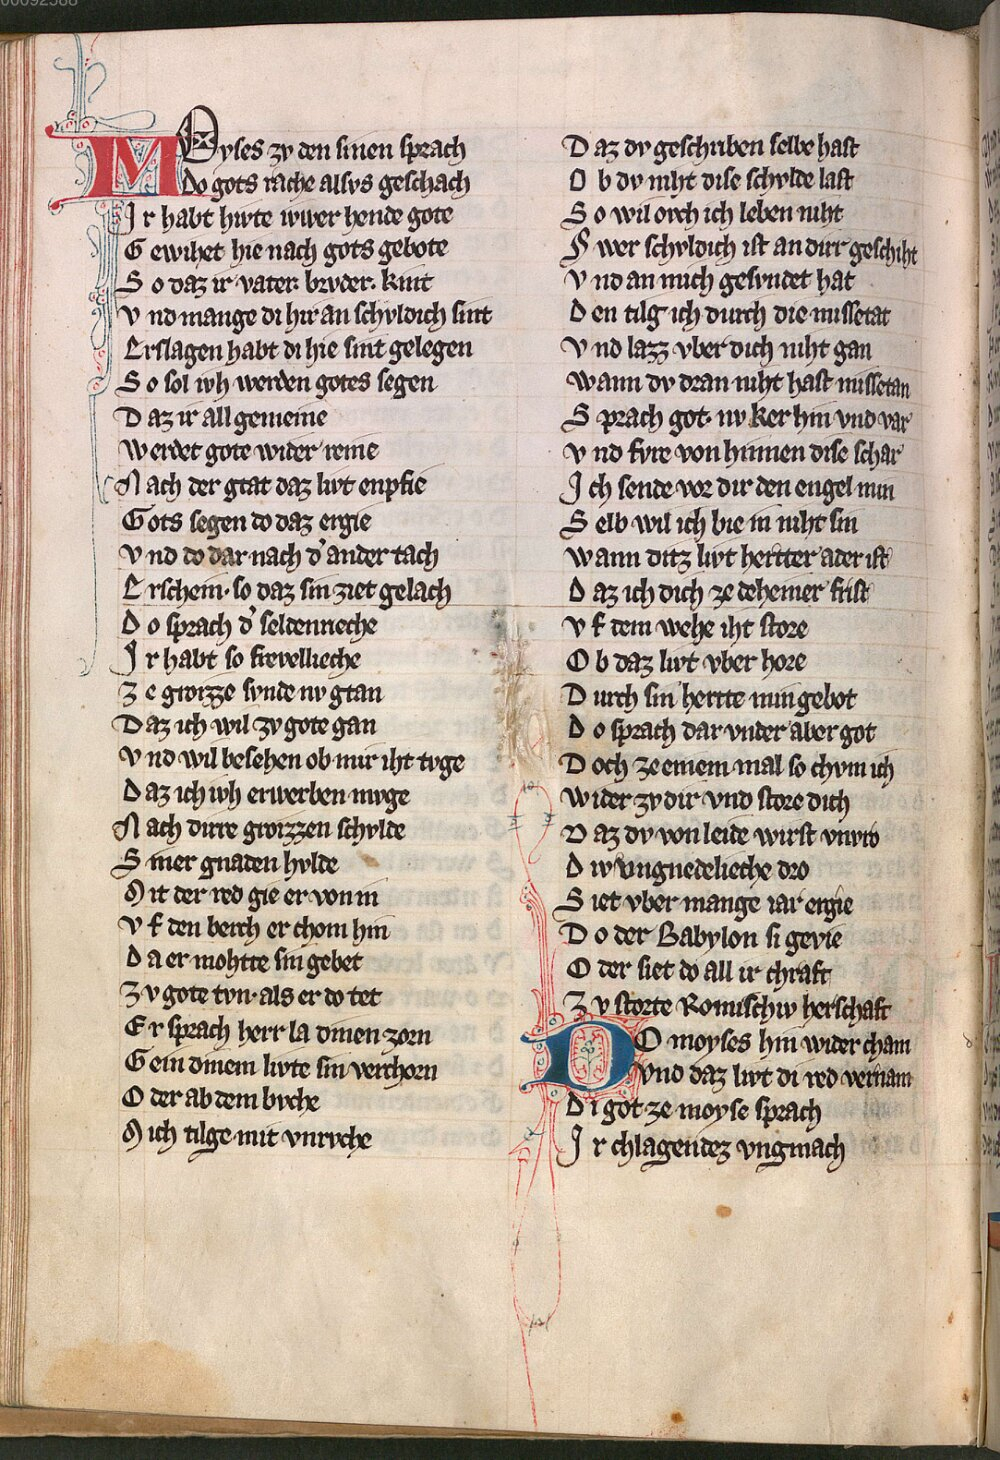 00092588
MOyses zv den sinen sprach
do gots rache alsvs geschach
Ir habt hivte iwer hende gote
Gewihet hie nach gots gebote
So daz ir vater. brvder. kint
vnd mange di hir an schvldich sint
Erslagen habt di hie sint gelegen
So sol iwh werden gotes segen
Daz ir all gemeine
werdet gote wider reine
Nach der gtat daz livt enpfie
Gots segen do daz ergie
vnd do dar nach d' ander tach
Erschein. so daz sin ziet gelach
Do sprach d' seldenrieche
Ir habt so frevelliche
ze grozze svnde nv gtan
Daz ich wil zv gote gan
vnd wil besehen ob mir iht tvge
Daz ich iwh erwerben mvge
Nach dirre grozzen schvlde
Siner gnaden hvlde
Mit der red gie er von in
vf den berch er chom hin
Da er mohtte sin gebet
zv gote tvn. als er do tet
Er sprach herr la dinen zorn
Gein dinem livte sin verchorn
Oder ab dem bvche
Mich tilge mit vnrvche
Daz dv geschriben selbe hast
Ob dv niht dise schvlde last
So wil och ich leben niht
Swer schvldich ist an dirr geschiht
vnd an mich gesvndet hat
Den tilg ich durch die missetat
vnd lazz vber dich niht gan
wann dv dran niht hast missetan
Sprach got. nv ker hin vnd var
vnd fvre von hinnen dise schar
Ich sende vor dir den engel min
Selb wil ich bie in niht sin
wann ditz livt hertter ader ist
Daz ich dich ze deheiner frist
vf dem wehe iht store
Ob daz livt vber hore
Durch sin hertte min gebot
Do sprach dar vnder aber got
Doch ze einem mal so chvm ich
wider zv dir vnd store dich
Daz dv von leide wirst vnvro
Div vngnedelieche dro
Siet vber mange iar ergie
Do der Babylon si gevie
Oder siet do all ir chraft
Zv storte Romischiv herschaft
DO moyses hin wider cham
vnd daz livt di red vernam
Di got ze moyse sprach
Ir chlagendez vngmach